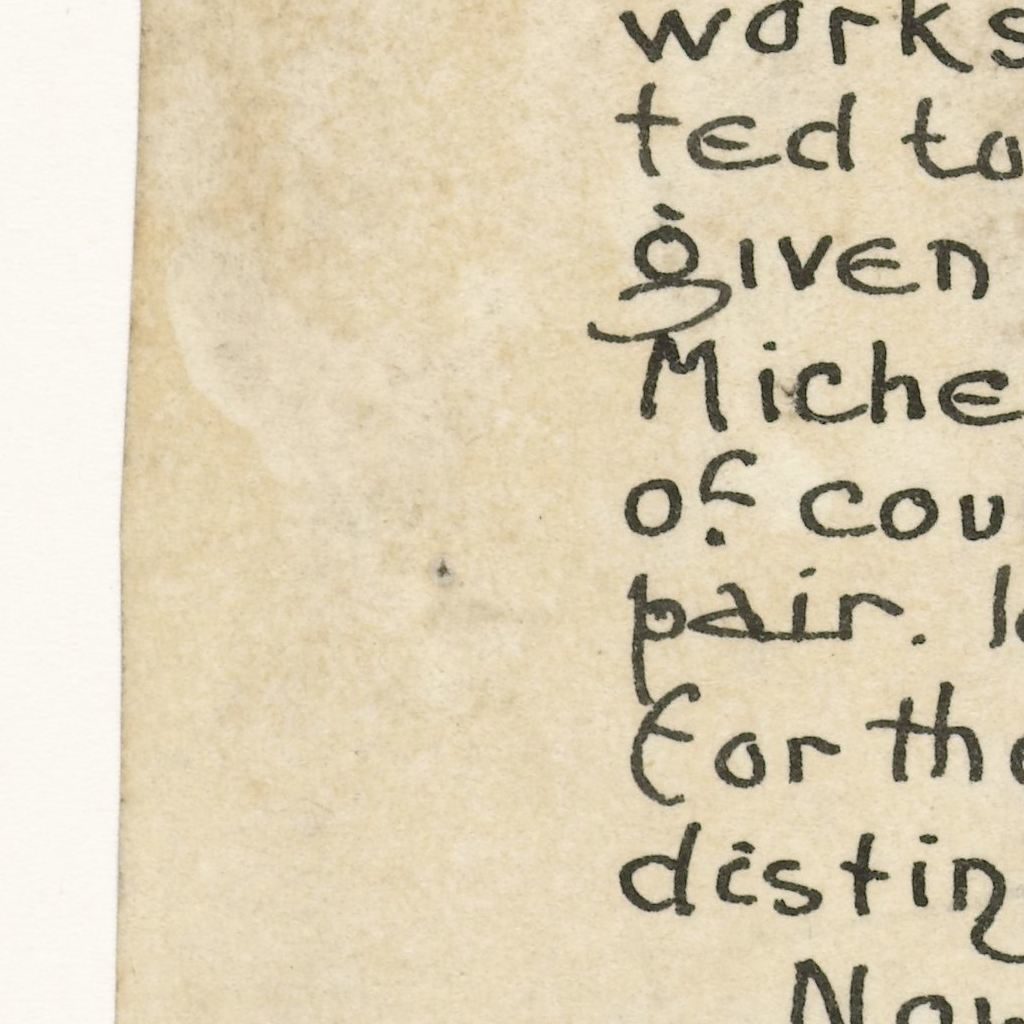 works
ted to
given
Miche
of cou
pair. 
for the
distin
Now